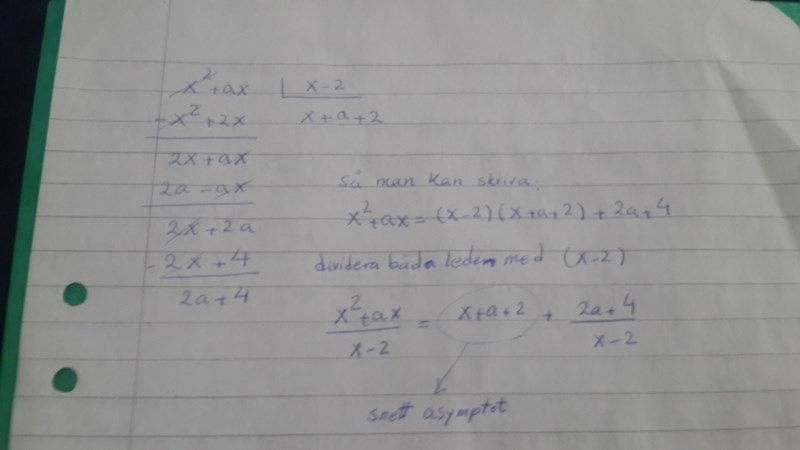 x²+ax | x-2
-x²+2x x+a+2
2x+ax
2a-ax
2x+2a
-2x+4
2a+4
så man kan skriva:
x²+ax=(x-2)(x+a+2)+2a+4
dividera båda leden med (x-2)
x²+ax/x-2 = x+a+2 + 2a+4/x-2
snett asymptot